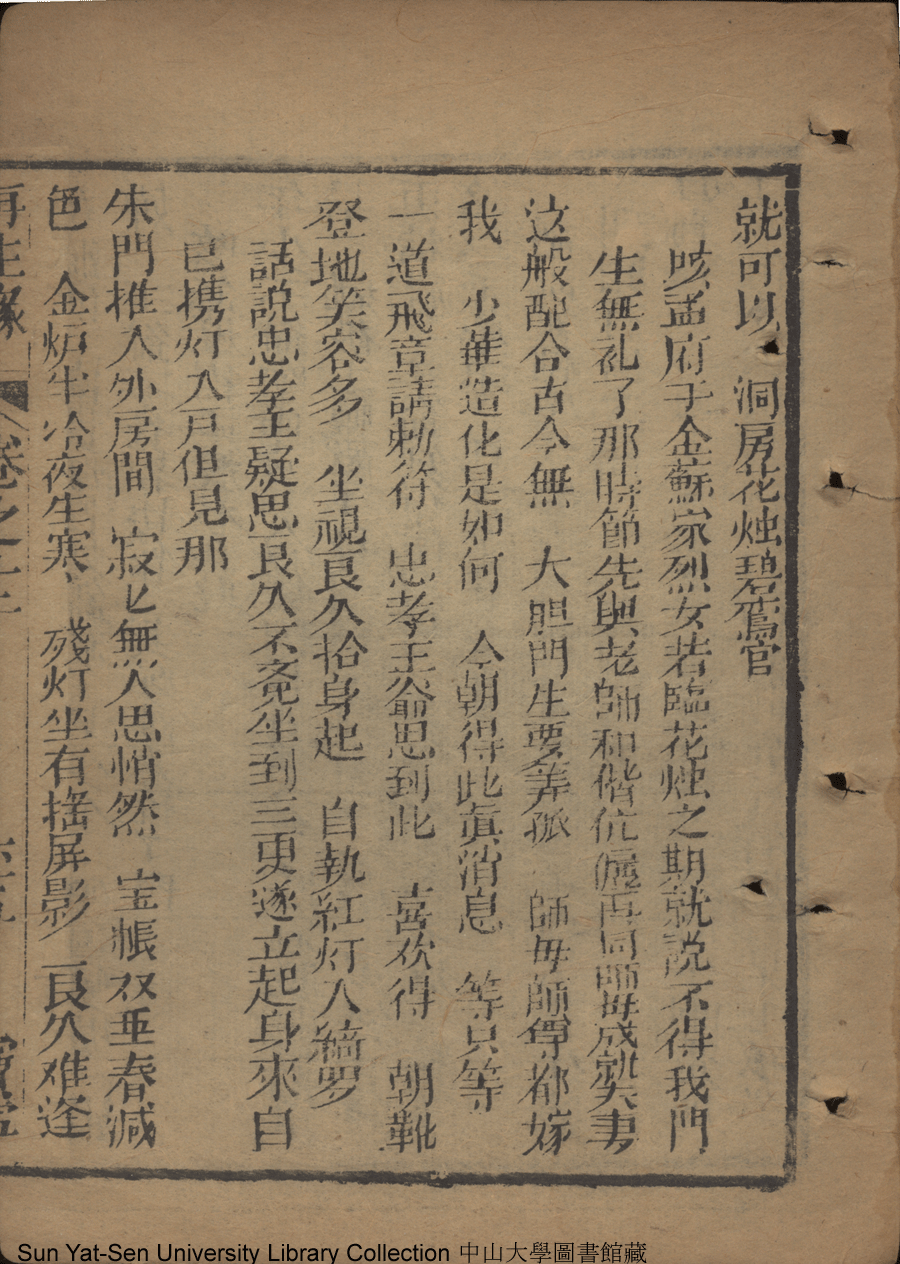 就可以 洞房花烛碧鸾官
咳孟府子金蘇家烈女若臨花烛之期就説不得我門
生無礼了那時節先與老師和偕伉儷再同師毋成就夫妻
这般配合古今無 大胆門生要筭孤 師毋師尊都嫁
我 少華造化是如何 今朝得此眞消息 等只等
一道飛章請勅符 忠孝王爺思到此 喜欢得 朝靴
登地笑容多 坐視良久抬身起 自執紅灯入綃罗
話説忠孝王疑思良久不竟坐到三更遂立起身來自
已携灯入戸但見那
朱門推入外房間 寂匕無人思悄然 宝帳双垂春減
色 金炉半冷夜生寒 殘灯坐有摇屏影 良久难逢
再生縁 卷之十
Sun Yat-Sen University Library Collection 中山大學圖書館藏